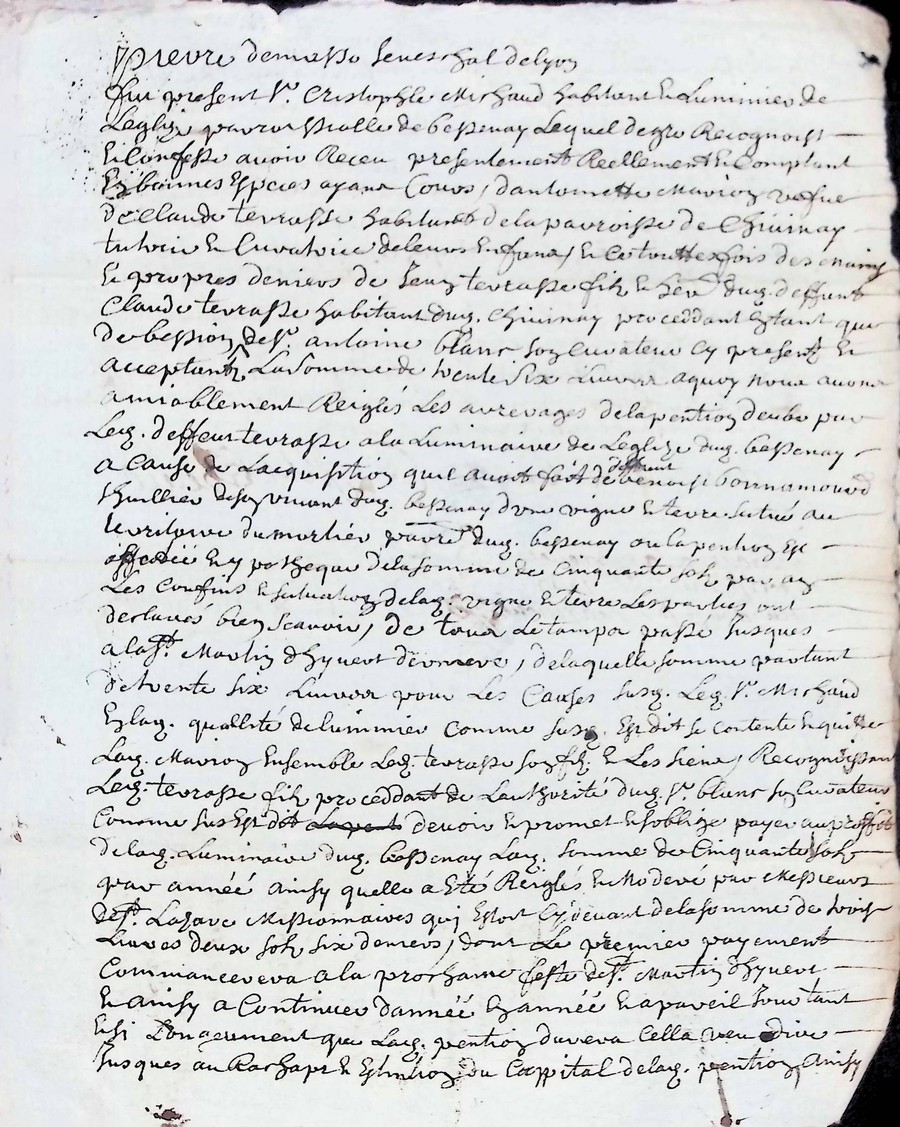 pierre demasso seneschal de lyon
fut present Sr. Cristophle Michaud habitant & Luminier de
Leglize parroissialle de bessenay Lequel de gre Recognoist
& Confesse avoir Receu presentement Reellement & Comptant
En bonnes Especes ayant Cours, dantoinette Marion vefue
de Claude terrasse habitant de la parroisse de Chivinay
tutrice & Curatrice de leurs Enfans, & Ce touttesfois des mains
& propres deniers de terrasse filz & her. dud. deffunt
Claude terrasse habitant dud. Chivinay proceddant Estant que
de bession de Sr. antoine blanc son Curateur Cy present &
acceptant, La somme de trente six Livres a quoy nous avons
amiablement Reiglés Les arrerages de la pention deube par
Led. deffunt terrasse a la Luminaire de Leglize dud. bessenay
a Cause de Lacquisition quil avoit fait de deffunt benoist bonnamour
thuillier de son vivant dud. bessenay dune vigne & terre située au
territoire du mortier parre. dud. bessenay ou la pention Est
affectée & ypotheque de la somme de Cinquante solz par an
Les Confins & situation de lad. vigne & terre Les parties ont
declarés bien scavoir, de tous Le tamps passé Jusques
a la St. Martin dhyvert derniere, de laquelle somme partant
de trente six Livres pour Les Causes susd. Led. Sr. Michaud
En lad. quallité de luminier Comme susd. Est dit se Contente & quitte
Lad. Marion Ensemble Led. terrasse son filz & Les siens, Recognoissant
Led. terrasse filz proceddant de Lauthorité dud. Sr. blanc son Curateur
Comme sus Est dit devoir & promet & soblige payer au proffit
de lad. Luminaire dud. bessenay Lad. somme de Cinquante solz
par année Ainsy quelle a Eté Reiglés & Moderé par Messieurs
de St. Lazare Missionnaires qui Estoit Cy devant de la somme de trois
Livres deux solz six deniers, dont Le premier payement
Commancerera a la prochaine feste de St. Martin dhyvert
& Ainsy a Continuer dannée En année & a pareil Jour tant
& si Longuement que Lad. pention durera Cella veu dire
Jusques au Rachapt & Extinction du Cappital de lad. pention Ainsy